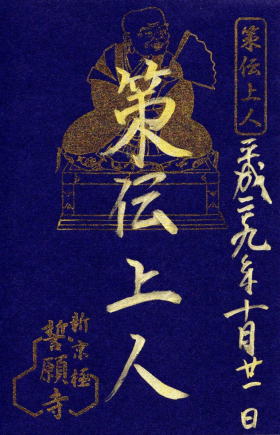 策伝上人
平成二九年十月廿一日
策伝上人
新京極
誓願寺